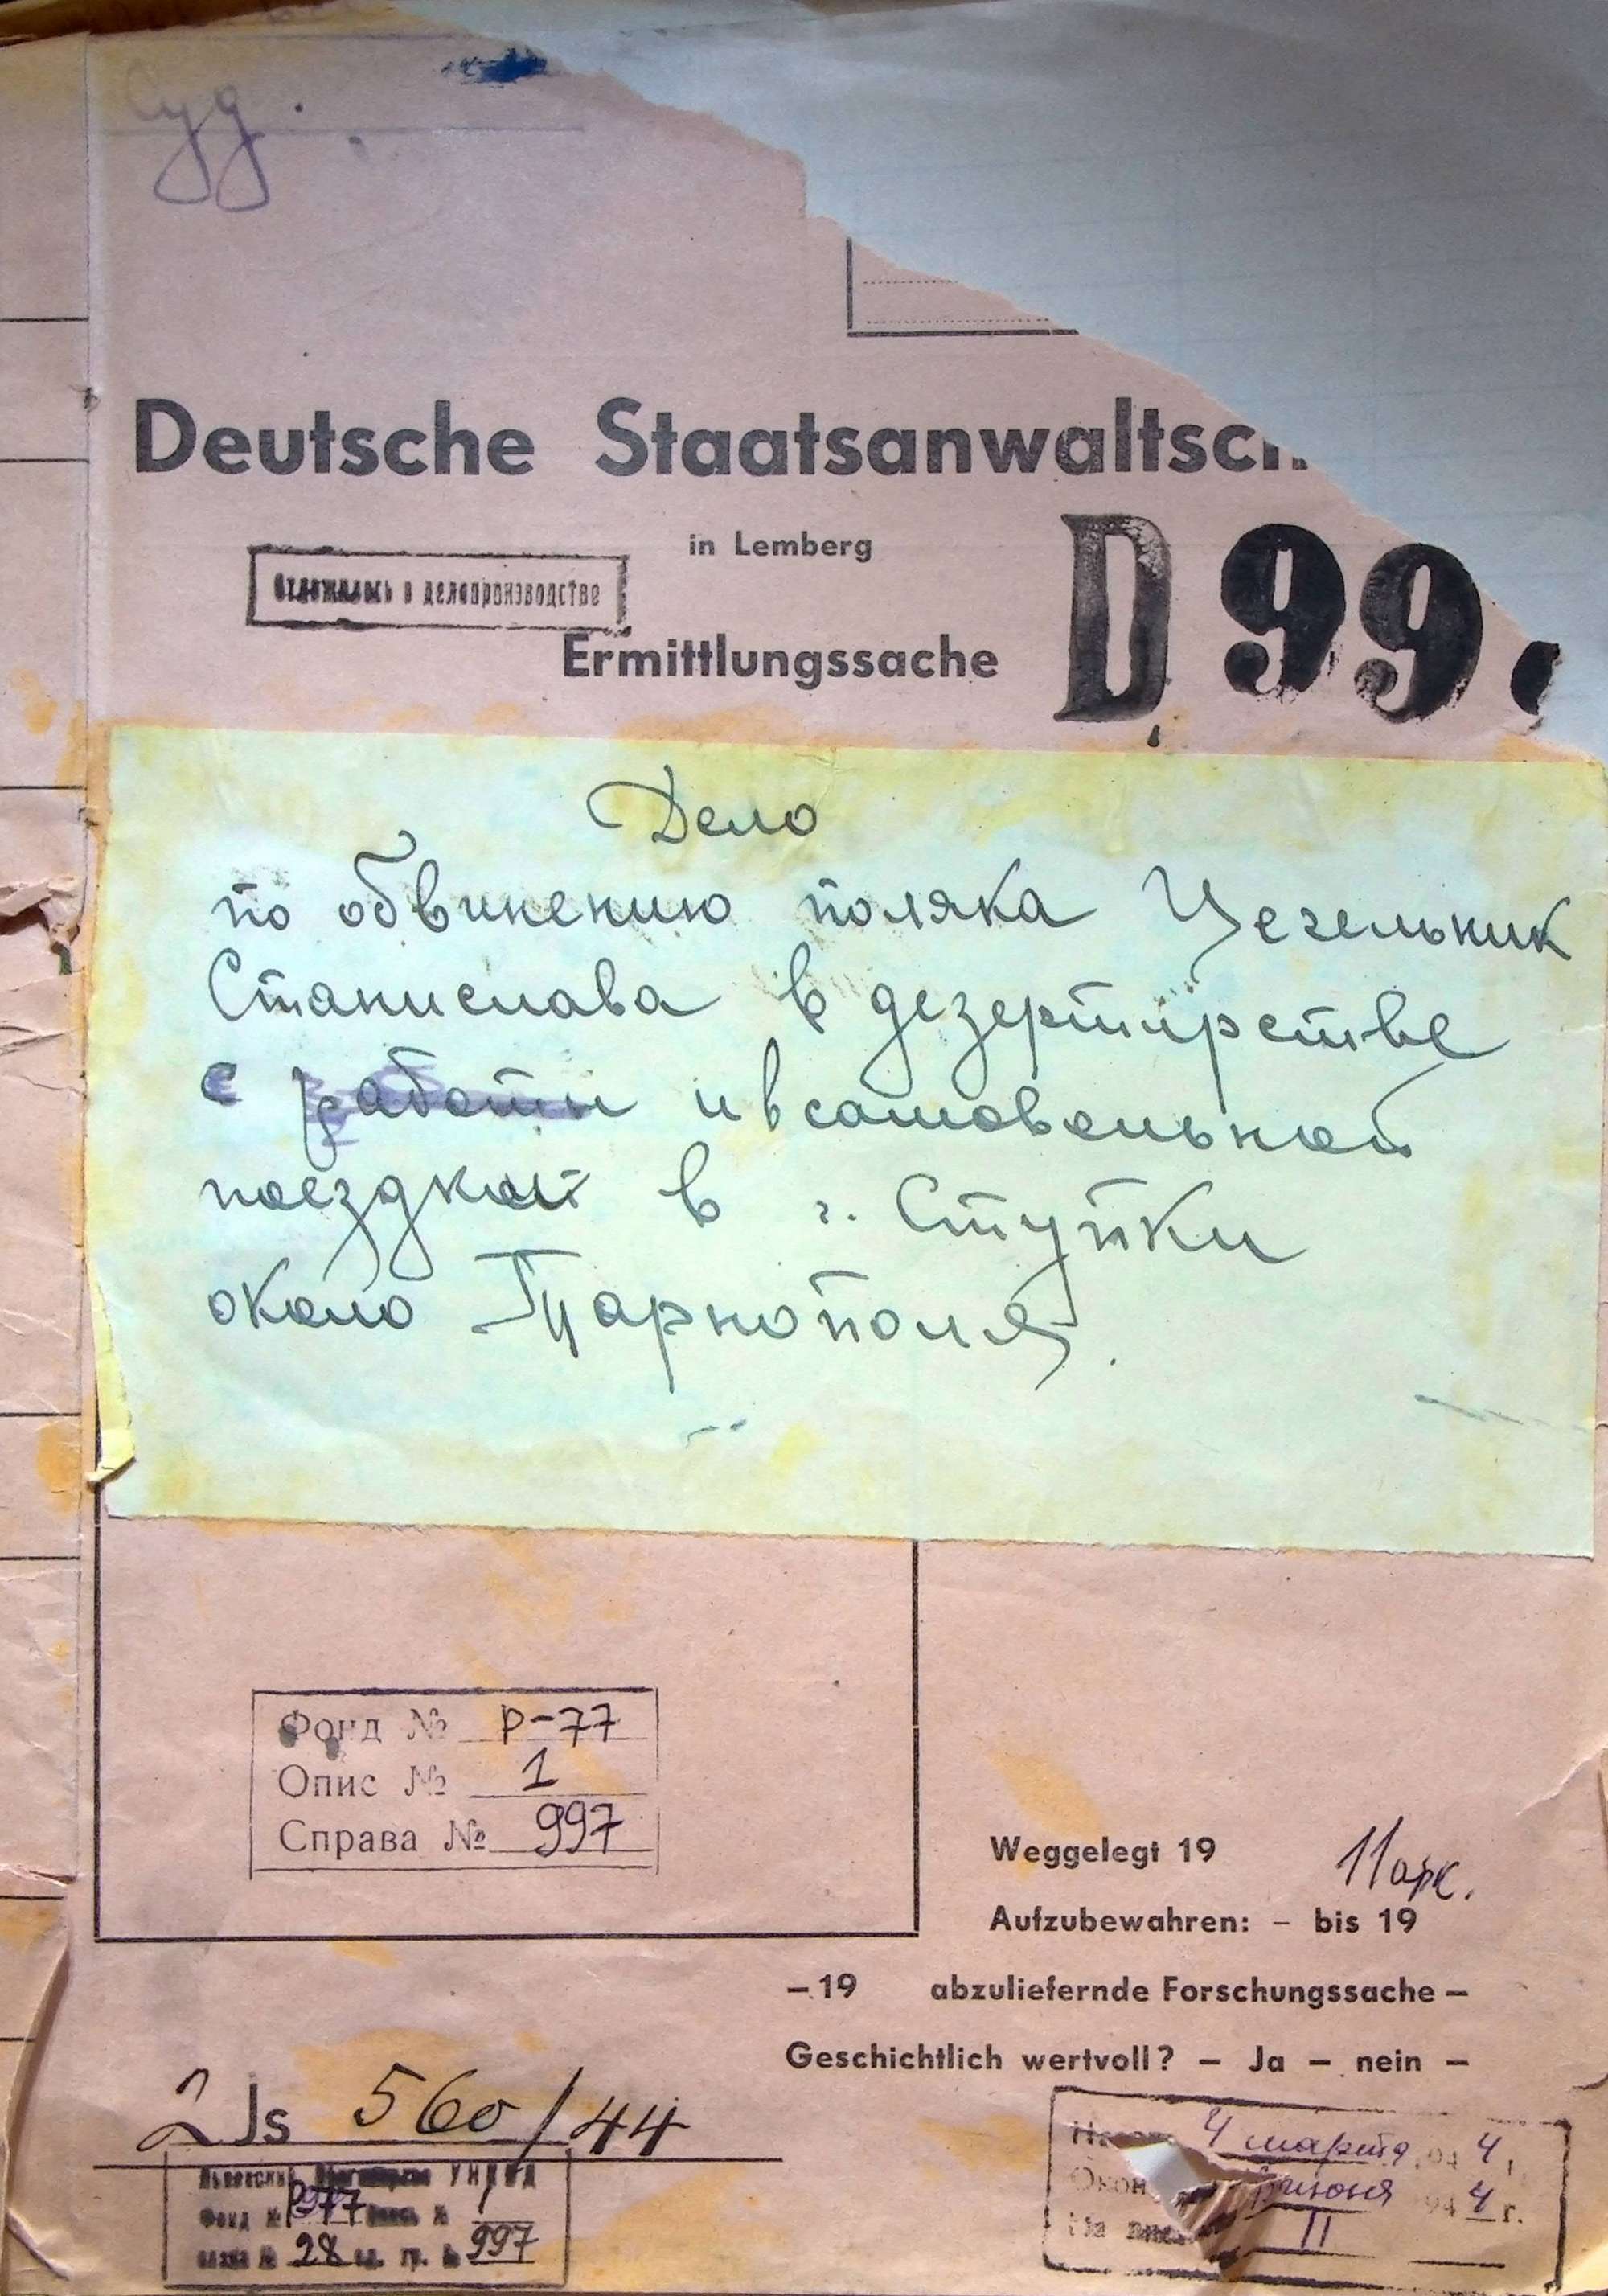 Суд.
Deutsche Staatsanwaltsch
in Lemberg
Отложилось в делопроизводстве
Ermittlungssache
D 99.
Дело
по обвинению поляка Цегельник
Станислава в дезертирстве
с работы и в самовольной
поездкой в г. Ступки
около Тарнополя.
Фонд № Р-77
Опис № 1
Справа № 997
Weggelegt 19
11 арк.
Aufzubewahren: – bis 19
– 19 abzuliefernde Forschungssache –
Geschichtlich wertvoll? – Ja – nein –
2 Js 560/44
Львовский УНКВД
Фонд № Р77 Опись № 1
связка № 28 ед. хр. № 997
4 марта 1944 г.
Окон июня 1944 г.
На лис 11